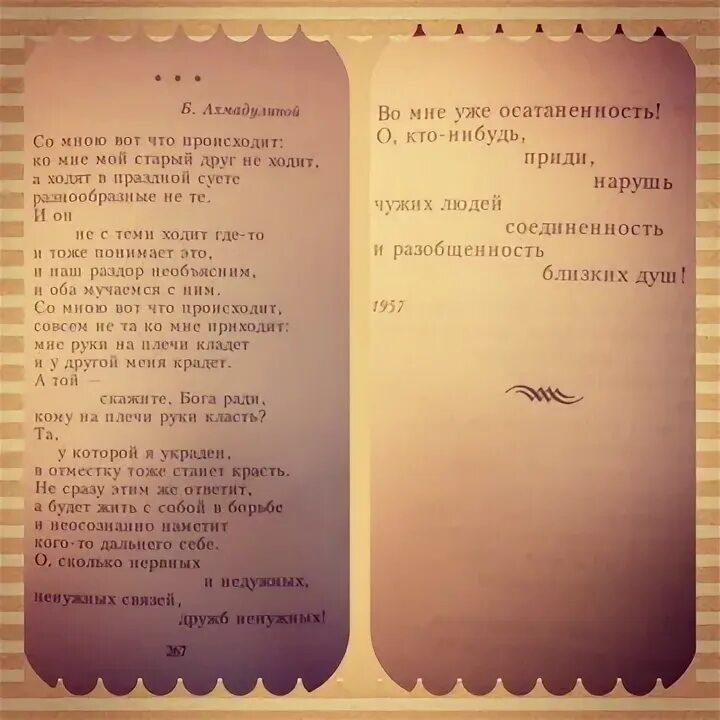 • • •
Б. Ахмадулиной
Со мною вот что происходит:
ко мне мой старый друг не ходит,
а ходят в праздной суете
разнообразные не те.
И он
не с теми ходит где-то
и тоже понимает это,
и наш раздор необъясним,
и оба мучаемся с ним.
Со мною вот что происходит,
совсем не та ко мне приходит:
мне руки на плечи кладет
и у другой меня крадет.
А той —
скажите, Бога ради,
кому на плечи руки класть?
Та,
у которой я украден,
в отместку тоже станет красть.
Не сразу этим же ответит,
а будет жить с собой в борьбе
и неосознанно наметит
кого-то дальнего себе.
О, сколько нервных
и недужных,
ненужных связей,
дружб ненужных!
267
Во мне уже осатаненность!
О, кто-нибудь,
приди,
нарушь
чужих людей
соединенность
и разобщенность
близких душ!
1957